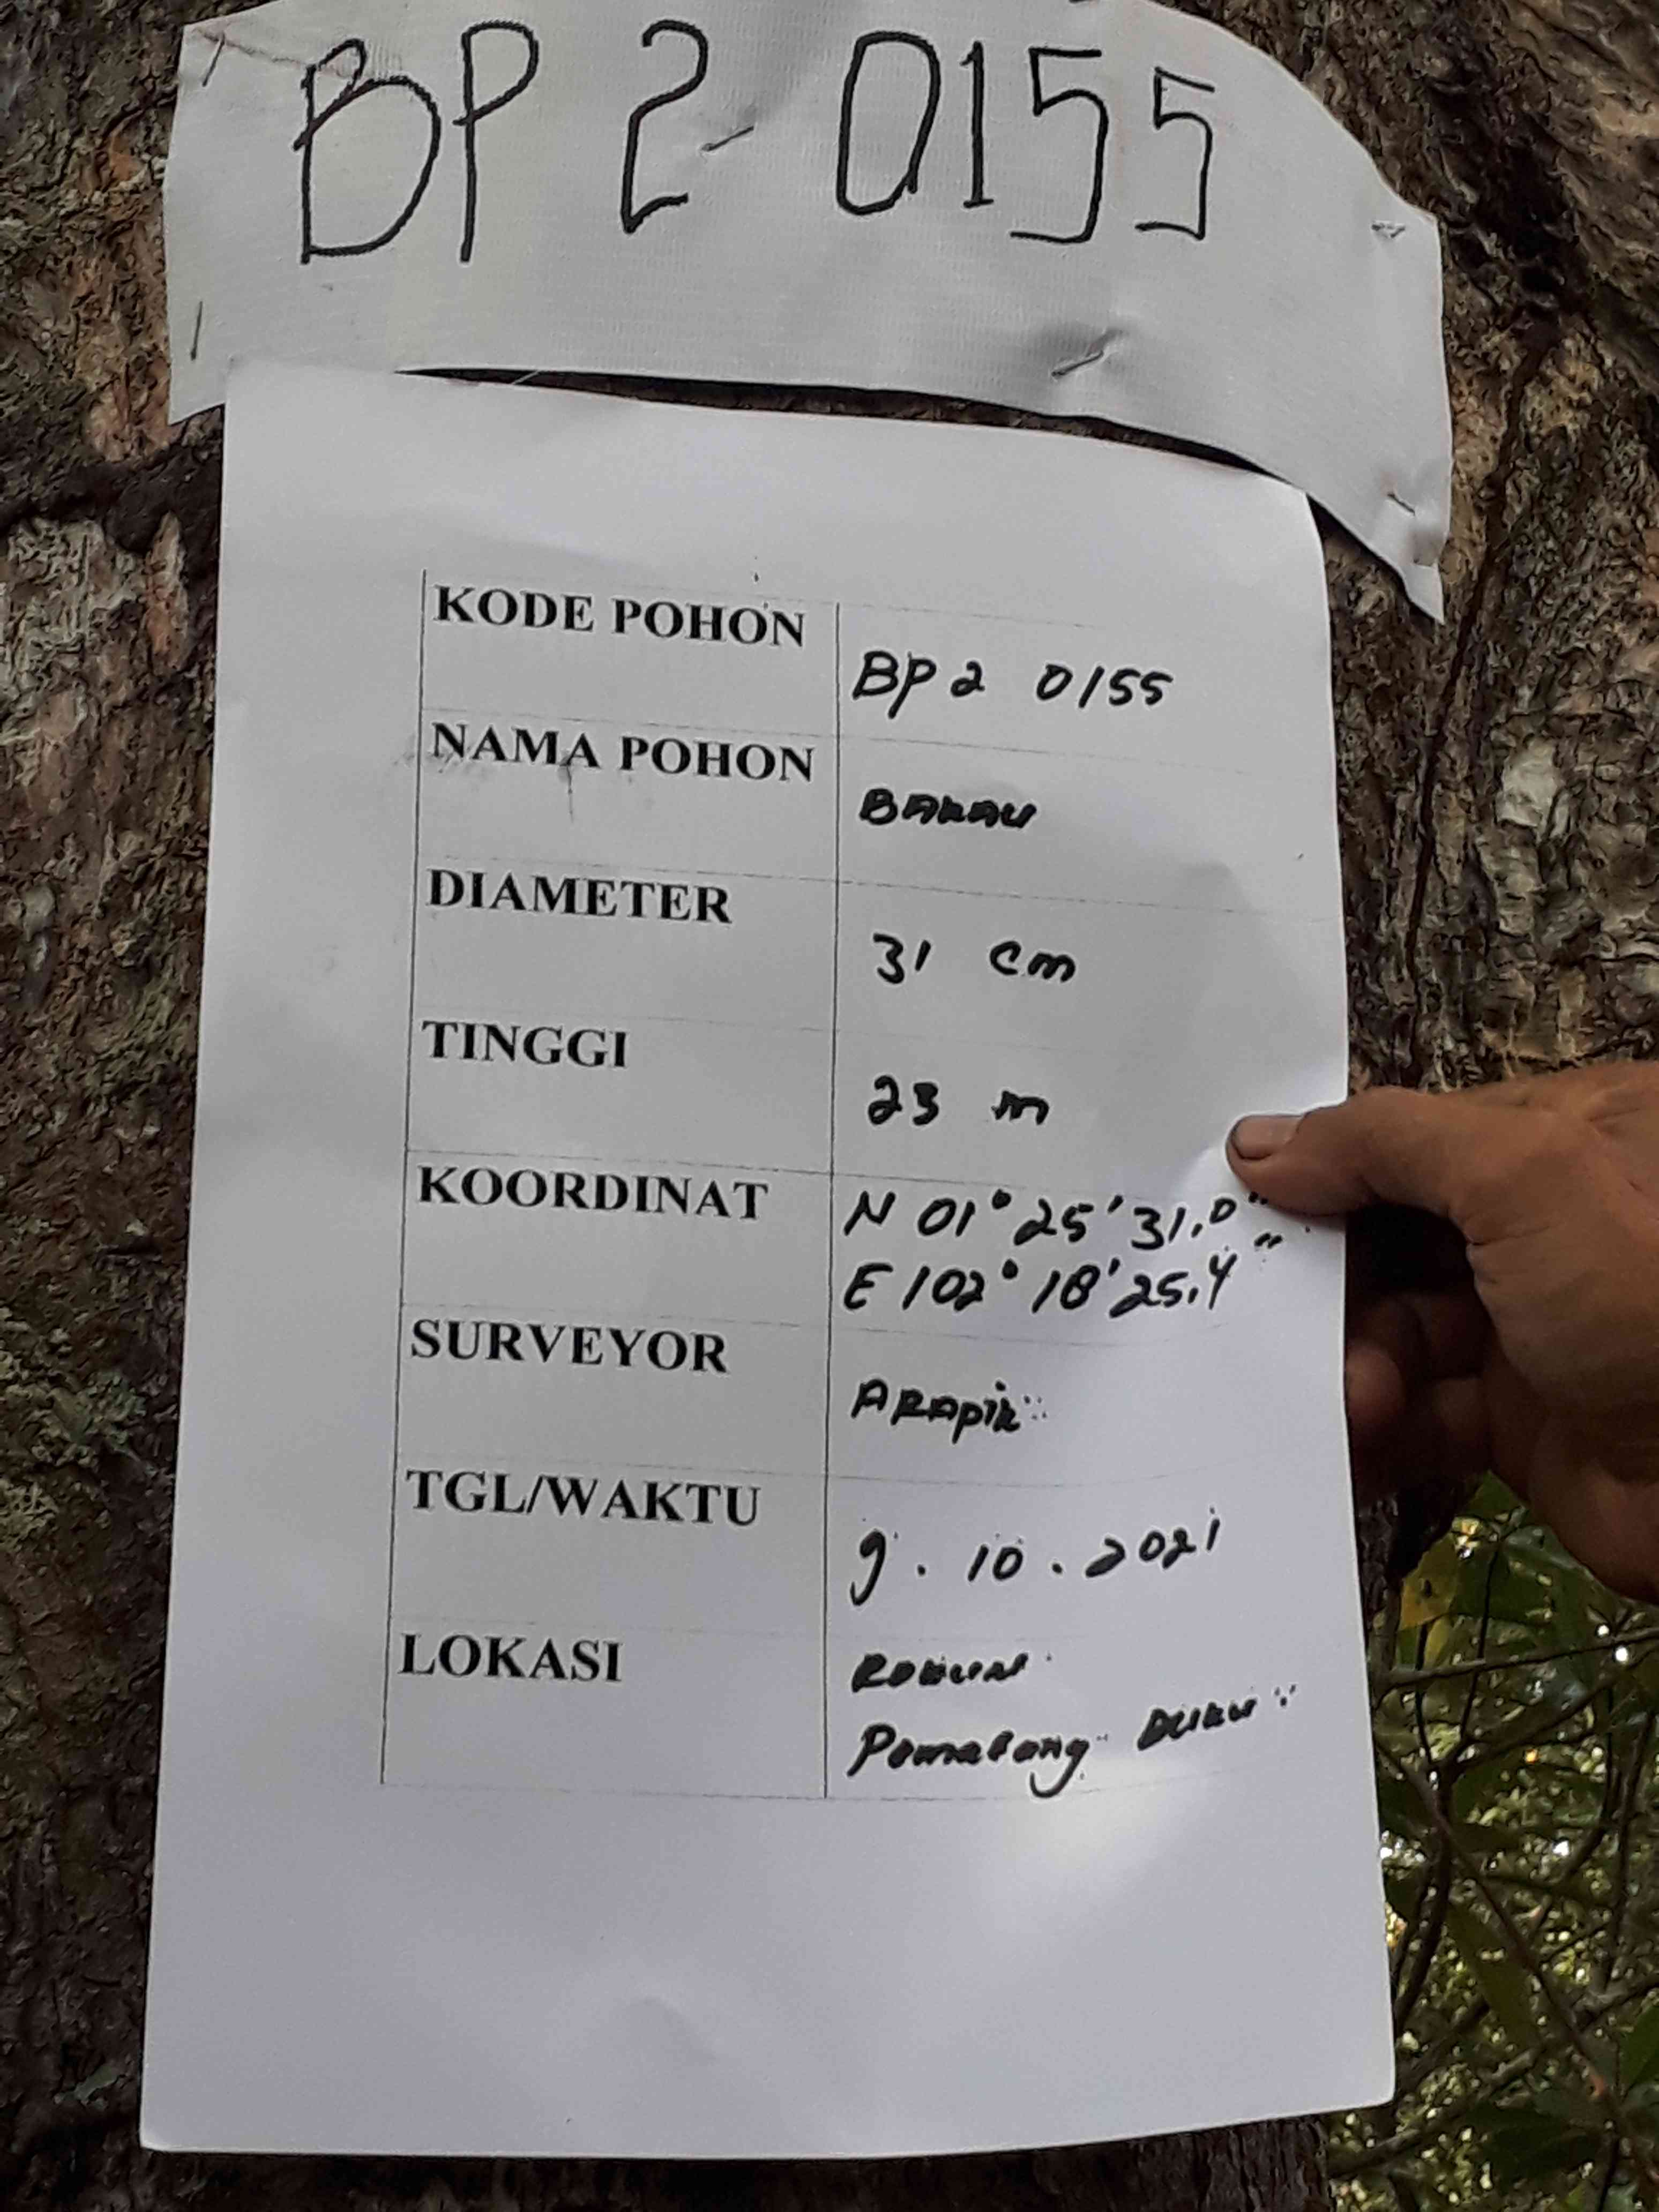 BP 2-0155
KODE POHON
BP 2 0155
NAMA POHON
BAKAU
DIAMETER
31 cm
TINGGI
23 m
KOORDINAT
N 01° 25' 31.0"
E 102° 18' 25.4"
SURVEYOR
ARApik
TGL/WAKTU
9. 10. 2021
LOKASI